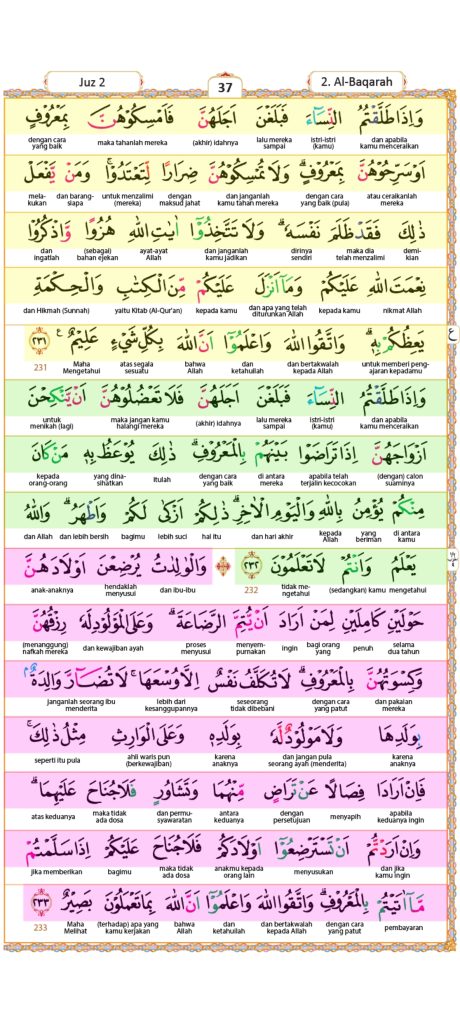 Juz 2
37
2. Al-Baqarah
وَاِذَا طَلَّقْتُمُ النِّسَاۤءَ فَبَلَغْنَ اَجَلَهُنَّ فَاَمْسِكُوْهُنَّ بِمَعْرُوْفٍ
dan apabila kamu menceraikan istri-istri (kamu) lalu mereka sampai (akhir) idahnya maka tahanlah mereka dengan cara yang baik
اَوْ سَرِّحُوْهُنَّ بِمَعْرُوْفٍۗ وَلَا تُمْسِكُوْهُنَّ ضِرَارًا لِّتَعْتَدُوْا ۚ وَمَنْ يَّفْعَلْ
atau ceraikanlah mereka dengan cara yang baik (pula) dan janganlah kamu tahan mereka dengan maksud jahat untuk menzalimi (mereka) dan barang-siapa mela-kukan
ذٰلِكَ فَقَدْ ظَلَمَ نَفْسَهٗ ۗ وَلَا تَتَّخِذُوْٓا اٰيٰتِ اللّٰهِ هُزُوًا وَّاذْكُرُوْا
demi-kian maka dia telah menzalimi dirinya sendiri dan janganlah kamu jadikan ayat-ayat Allah (sebagai) bahan ejekan dan ingatlah
نِعْمَتَ اللّٰهِ عَلَيْكُمْ وَمَآ اَنْزَلَ عَلَيْكُمْ مِّنَ الْكِتٰبِ وَالْحِكْمَةِ
nikmat Allah kepada kamu dan apa yang telah diturunkan Allah kepada kamu yaitu Kitab (Al-Qur'an) dan Hikmah (Sunnah)
يَعِظُكُمْ بِهٖ ۗوَاتَّقُوا اللّٰهَ وَاعْلَمُوْٓا اَنَّ اللّٰهَ بِكُلِّ شَيْءٍ عَلِيْمٌ ࣖ ٢٣١
untuk memberi peng-ajaran kepadamu dan bertakwalah kepada Allah dan ketahuilah bahwa Allah atas segala sesuatu Maha Mengetahui 231
وَاِذَا طَلَّقْتُمُ النِّسَاۤءَ فَبَلَغْنَ اَجَلَهُنَّ فَلَا تَعْضُلُوْهُنَّ اَنْ يَّنْكِحْنَ
dan apabila kamu menceraikan istri-istri (kamu) lalu mereka sampai (akhir) idahnya maka jangan kamu halangi mereka untuk menikah (lagi)
اَزْوَاجَهُنَّ اِذَا تَرَاضَوْا بَيْنَهُمْ بِالْمَعْرُوْفِۗ ذٰلِكَ يُوْعَظُ بِهٖ مَنْ كَانَ
(dengan) calon suaminya apabila telah terjalin kecocokan di antara mereka dengan cara yang baik itulah yang dina-sihatkan kepada orang-orang
مِنْكُمْ يُؤْمِنُ بِاللّٰهِ وَالْيَوْمِ الْاٰخِرِۗ ذٰلِكُمْ اَزْكٰى لَكُمْ وَاَطْهَرُۗ وَاللّٰهُ
di antara kamu yang beriman kepada Allah dan hari akhir hal itu lebih suci bagimu dan lebih bersih dan Allah
يَعْلَمُ وَاَنْتُمْ لَا تَعْلَمُوْنَ ٢٣٢ ۞ وَالْوَالِدٰتُ يُرْضِعْنَ اَوْلَادَهُنَّ
mengetahui (sedangkan) kamu tidak me-ngetahui 232 dan ibu-Ibu hendaklah menyusui anak-anaknya
حَوْلَيْنِ كَامِلَيْنِ لِمَنْ اَرَادَ اَنْ يُّتِمَّ الرَّضَاعَةَ ۗ وَعَلَى الْمَوْلُوْدِ لَهٗ رِزْقُهُنَّ
selama dua tahun penuh bagi orang yang ingin menyem-purnakan proses menyusui dan kewajiban ayah (menanggung) nafkah mereka
وَكِسْوَتُهُنَّ بِالْمَعْرُوْفِۗ لَا تُكَلَّفُ نَفْسٌ اِلَّا وُسْعَهَا ۚ لَا تُضَاۤرَّ وَالِدَةٌ ۢ
dan pakaian mereka dengan cara yang patut seseorang tidak dibebani lebih dari kesanggupannya janganlah seorang Ibu menderita
بِوَلَدِهَا وَلَا مَوْلُوْدٌ لَّهٗ بِوَلَدِهٖ وَعَلَى الْوَارِثِ مِثْلُ ذٰلِكَ ۚ
karena anaknya dan jangan pula seorang ayah (menderita) karena anaknya ahli waris pun (berkewajiban) seperti itu pula
فَاِنْ اَرَادَا فِصَالًا عَنْ تَرَاضٍ مِّنْهُمَا وَتَشَاوُرٍ فَلَا جُنَاحَ عَلَيْهِمَا ۗ
apabila keduanya ingin menyapih dengan persetujuan antara keduanya dan permu-syawaratan maka tidak ada dosa atas keduanya
وَاِنْ اَرَدْتُّمْ اَنْ تَسْتَرْضِعُوْٓا اَوْلَادَكُمْ فَلَا جُنَاحَ عَلَيْكُمْ اِذَا سَلَّمْتُمْ
dan jika kamu ingin menyusukan anakmu kepada orang lain maka tidak ada dosa bagimu jika memberikan
مَّآ اٰتَيْتُمْ بِالْمَعْرُوْفِۗ وَاتَّقُوا اللّٰهَ وَاعْلَمُوْٓا اَنَّ اللّٰهَ بِمَا تَعْمَلُوْنَ بَصِيْرٌ ٢٣٣
pembayaran dengan cara yang patut dan bertakwalah kepada Allah dan ketahuilah bahwa Allah (terhadap) apa yang kamu kerjakan Maha Melihat 233